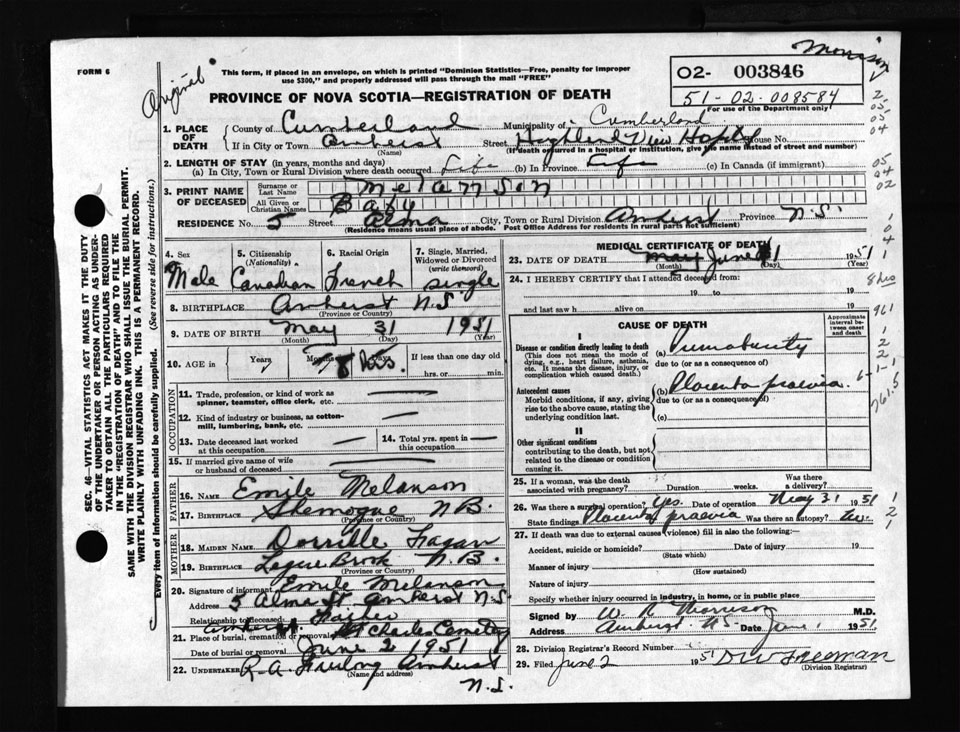 FORM 6
Original
This form, if placed in an envelope, on which is printed "Dominion Statistics—Free, penalty for improper
use $300," and properly addressed will pass through the mail "FREE"
PROVINCE OF NOVA SCOTIA—REGISTRATION OF DEATH
Morrison
O2- 003846
51-02-008584
For use of the Department only
1. PLACE OF DEATH
County of Cumberland Municipality of Cumberland
If in City or Town Amherst Street Highland View Hospital House No.
(Name) (If death occurred in a hospital or institution, give the name instead of street and number)
2. LENGTH OF STAY (in years, months and days)
(a) In City, Town or Rural Division where death occurred Life (b) In Province Life (c) In Canada (if immigrant)
3. PRINT NAME OF DECEASED
Surname or Last Name Melanson
All Given or Christian Names Baby
RESIDENCE No. 5 Street Alma City, Town or Rural Division Amherst Province N.S.
(Residence means usual place of abode. Post Office Address for residents in rural parts not sufficient)
4. Sex 5. Citizenship (Nationality) 6. Racial Origin 7. Single, Married, Widowed or Divorced (write the word)
Male Canadian French single
8. BIRTHPLACE Amherst N.S.
(Province or Country)
9. DATE OF BIRTH May 31 1951
(Month) (Day) (Year)
10. AGE in Years Months Days If less than one day old
8 hrs.
hrs. or min.
OCCUPATION
11. Trade, profession, or kind of work as spinner, teamster, office clerk, etc. —
12. Kind of industry or business, as cotton-mill, lumbering, bank, etc. —
13. Date deceased last worked at this occupation — 14. Total yrs. spent in this occupation —
15. If married give name of wife or husband of deceased —
FATHER
16. NAME Emile Melanson
17. BIRTHPLACE Shemogue N.B.
(Province or Country)
MOTHER
18. MAIDEN NAME Fagan
19. BIRTHPLACE Brook N.B.
(Province or Country)
20. Signature of informant Emile Melanson
Address 5 Alma St. Amherst N.S.
Relationship to deceased Father
21. Place of burial, cremation or removal St Charles Cemetery
Amherst
Date of burial or removal June 2 1951
22. UNDERTAKER R.A. Furlong Amherst
(Name and address)
N.S.
MEDICAL CERTIFICATE OF DEATH
23. DATE OF DEATH May June 1 1951
(Month) (Day) (Year)
24. I HEREBY CERTIFY that I attended deceased from:
19 to 19
and last saw h alive on 19
CAUSE OF DEATH
Approximate interval between onset and death
I
Disease or condition directly leading to death
(This does not mean the mode of dying, e.g., heart failure, asthenia, etc. It means the disease, injury, or complication which caused death.)
(a) Prematurity
due to (or as a consequence of)
Antecedent causes
Morbid conditions, if any, giving rise to the above cause, stating the underlying condition last.
(b) Placenta praevia
due to (or as a consequence of)
(c)
II
Other significant conditions contributing to the death, but not related to the disease or condition causing it.
25. If a woman, was the death associated with pregnancy? Duration weeks. Was there a delivery?
26. Was there a surgical operation? Yes. Date of operation May 31 1951
State findings Placenta praevia Was there an autopsy?
27. If death was due to external causes (violence) fill in also the following:
Accident, suicide or homicide? Date of injury 19
(State which)
Manner of injury
(How sustained)
Nature of injury
Specify whether injury occurred in industry, in home, or in public place
Signed by W. R. Morrison M.D.
Address Amherst N.S. Date June 1 1951
28. Division Registrar's Record Number
29. Filed June 2 1951 D W Freeman
(Division Registrar)
SEC. 46—VITAL STATISTICS ACT MAKES IT THE DUTY
OF THE UNDERTAKER OR PERSON ACTING AS UNDER-
TAKER TO OBTAIN ALL THE PARTICULARS REQUIRED
IN THE "REGISTRATION OF DEATH" AND TO FILE THE
SAME WITH THE DIVISION REGISTRAR WHO SHALL ISSUE THE BURIAL PERMIT.
WRITE PLAINLY WITH UNFADING INK. THIS IS A PERMANENT RECORD.
Every item of information should be carefully supplied. (See reverse side for instructions.)
2
05
05
04
05
04
02
8 hrs
961
6-1-1
761.5
1
2
1